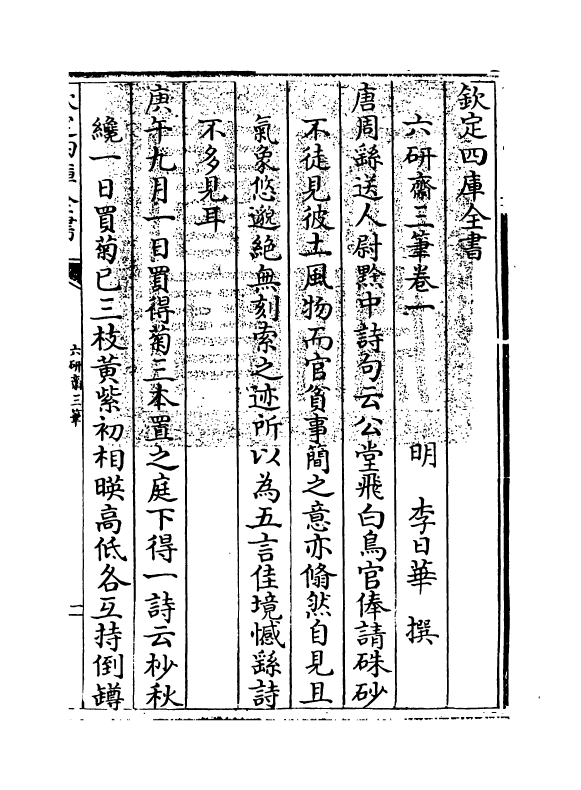 欽定四庫全書
六研齋三筆卷一
明 李日華 撰
唐周繇送人尉黔中詩句云公堂飛白鳥官俸請硃砂
不徒見彼土風物而官貧事簡之意亦翛然自見且
氣象悠邈絶無刻索之迹所以為五言佳境憾繇詩
不多見耳
庚午九月一日買得菊三本置之庭下得一詩云杪秋
纔一日買菊已三枝黄紫初相暎高低各互持倒罇
六研齋三筆
一